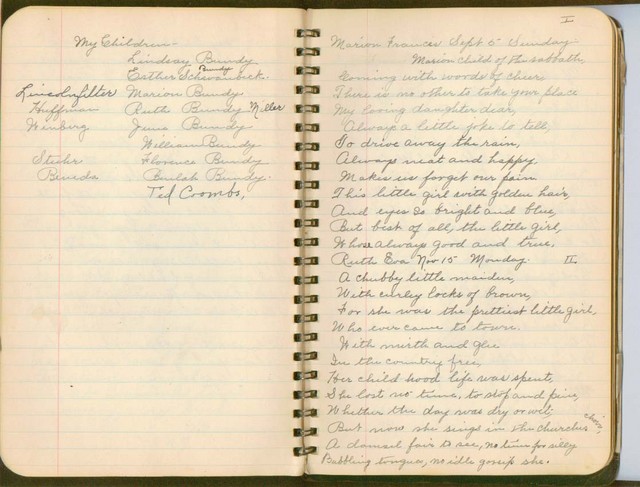 My Children
Lindsay Bundy
Bundy
Esther Schwanbeck.
Lincolnfelter Marion Bundy
Huffman Ruth Bundy Miller
Wenberg June Bundy
William Bundy
Stiehr Florence Bundy
Beneda Beulah Bundy.
Ted Coombs,
I
Marion Frances Sept 5 Sunday
Marion child of the sabbath,
Coming with words of cheer
There is no other to take your place
My loving daughter dear,
Always a little joke to tell,
To drive away the rain,
Always neat and happy
Makes us forget our pain
This little girl with golden hair,
And eyes so bright and blue,
But best of all, the little girl,
Whose always good and true,
Ruth Eva Nov 15 Monday. II.
A chubby little maiden,
With curley locks of brown,
For she was the prettiest little girl,
Who ever came to town.
With mirth and glee
In the country free,
Her child hood life was spent,
She lost no time, to stop and pine,
Whether the day was dry or wet;
But now she sings in the churches choir,
A damsel fair to see, no time for silly
Babbling tongues, no idle gossip she.